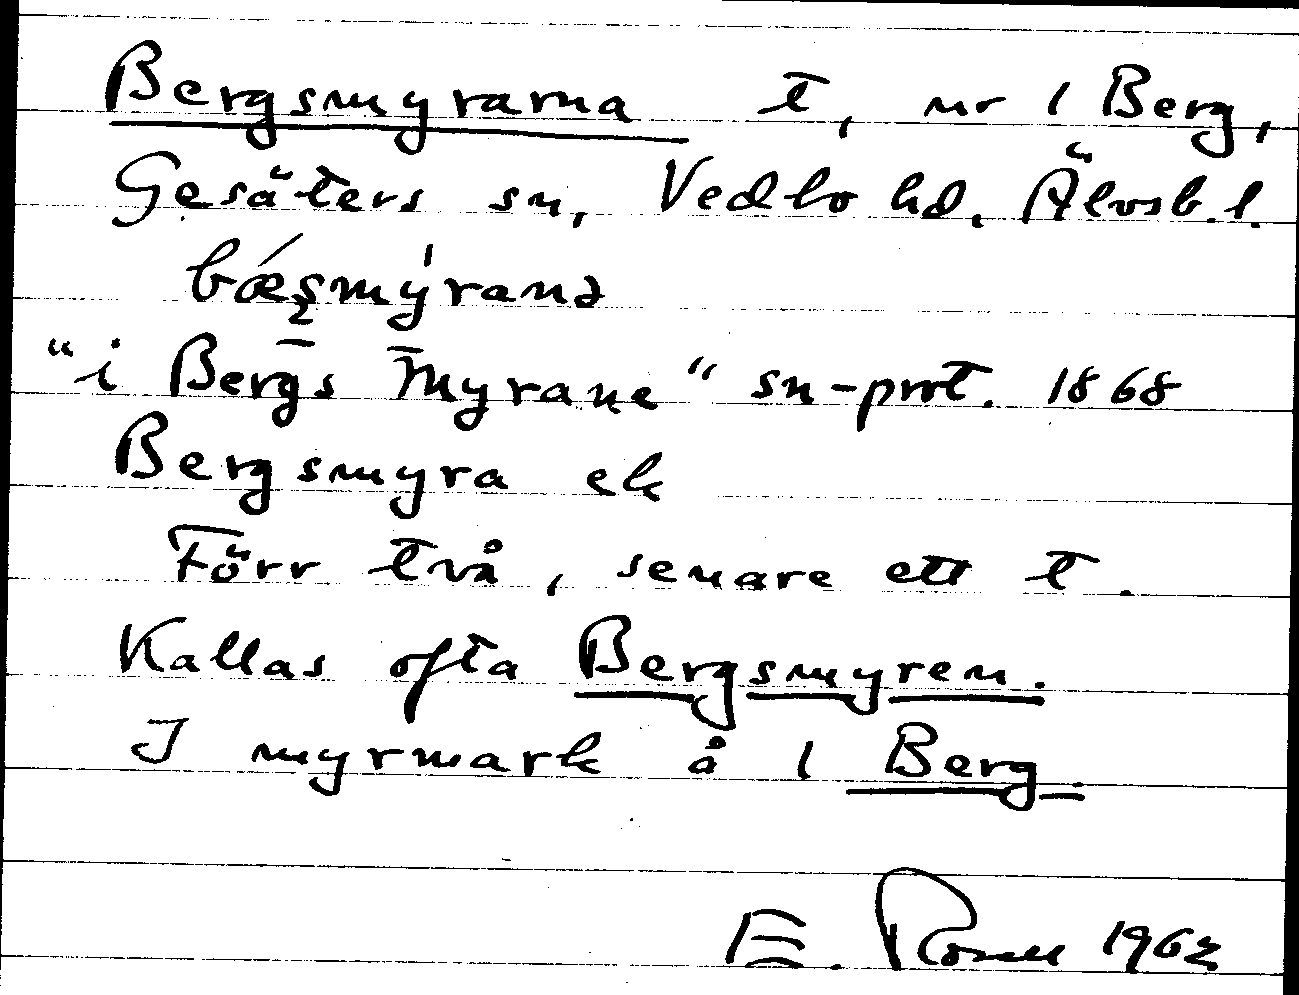 Bergsmyrarna t, nr 1 Berg,
Gesäters sn, Vedbo hd. Älvsb. l.
bǽşmýranə
"i Bergs Myrane" sn-prot. 1868
Bergsmyra ek
Förr två, senare ett t.
Kallas ofta Bergsmyren.
I myrmark å 1 Berg.
E. 1962